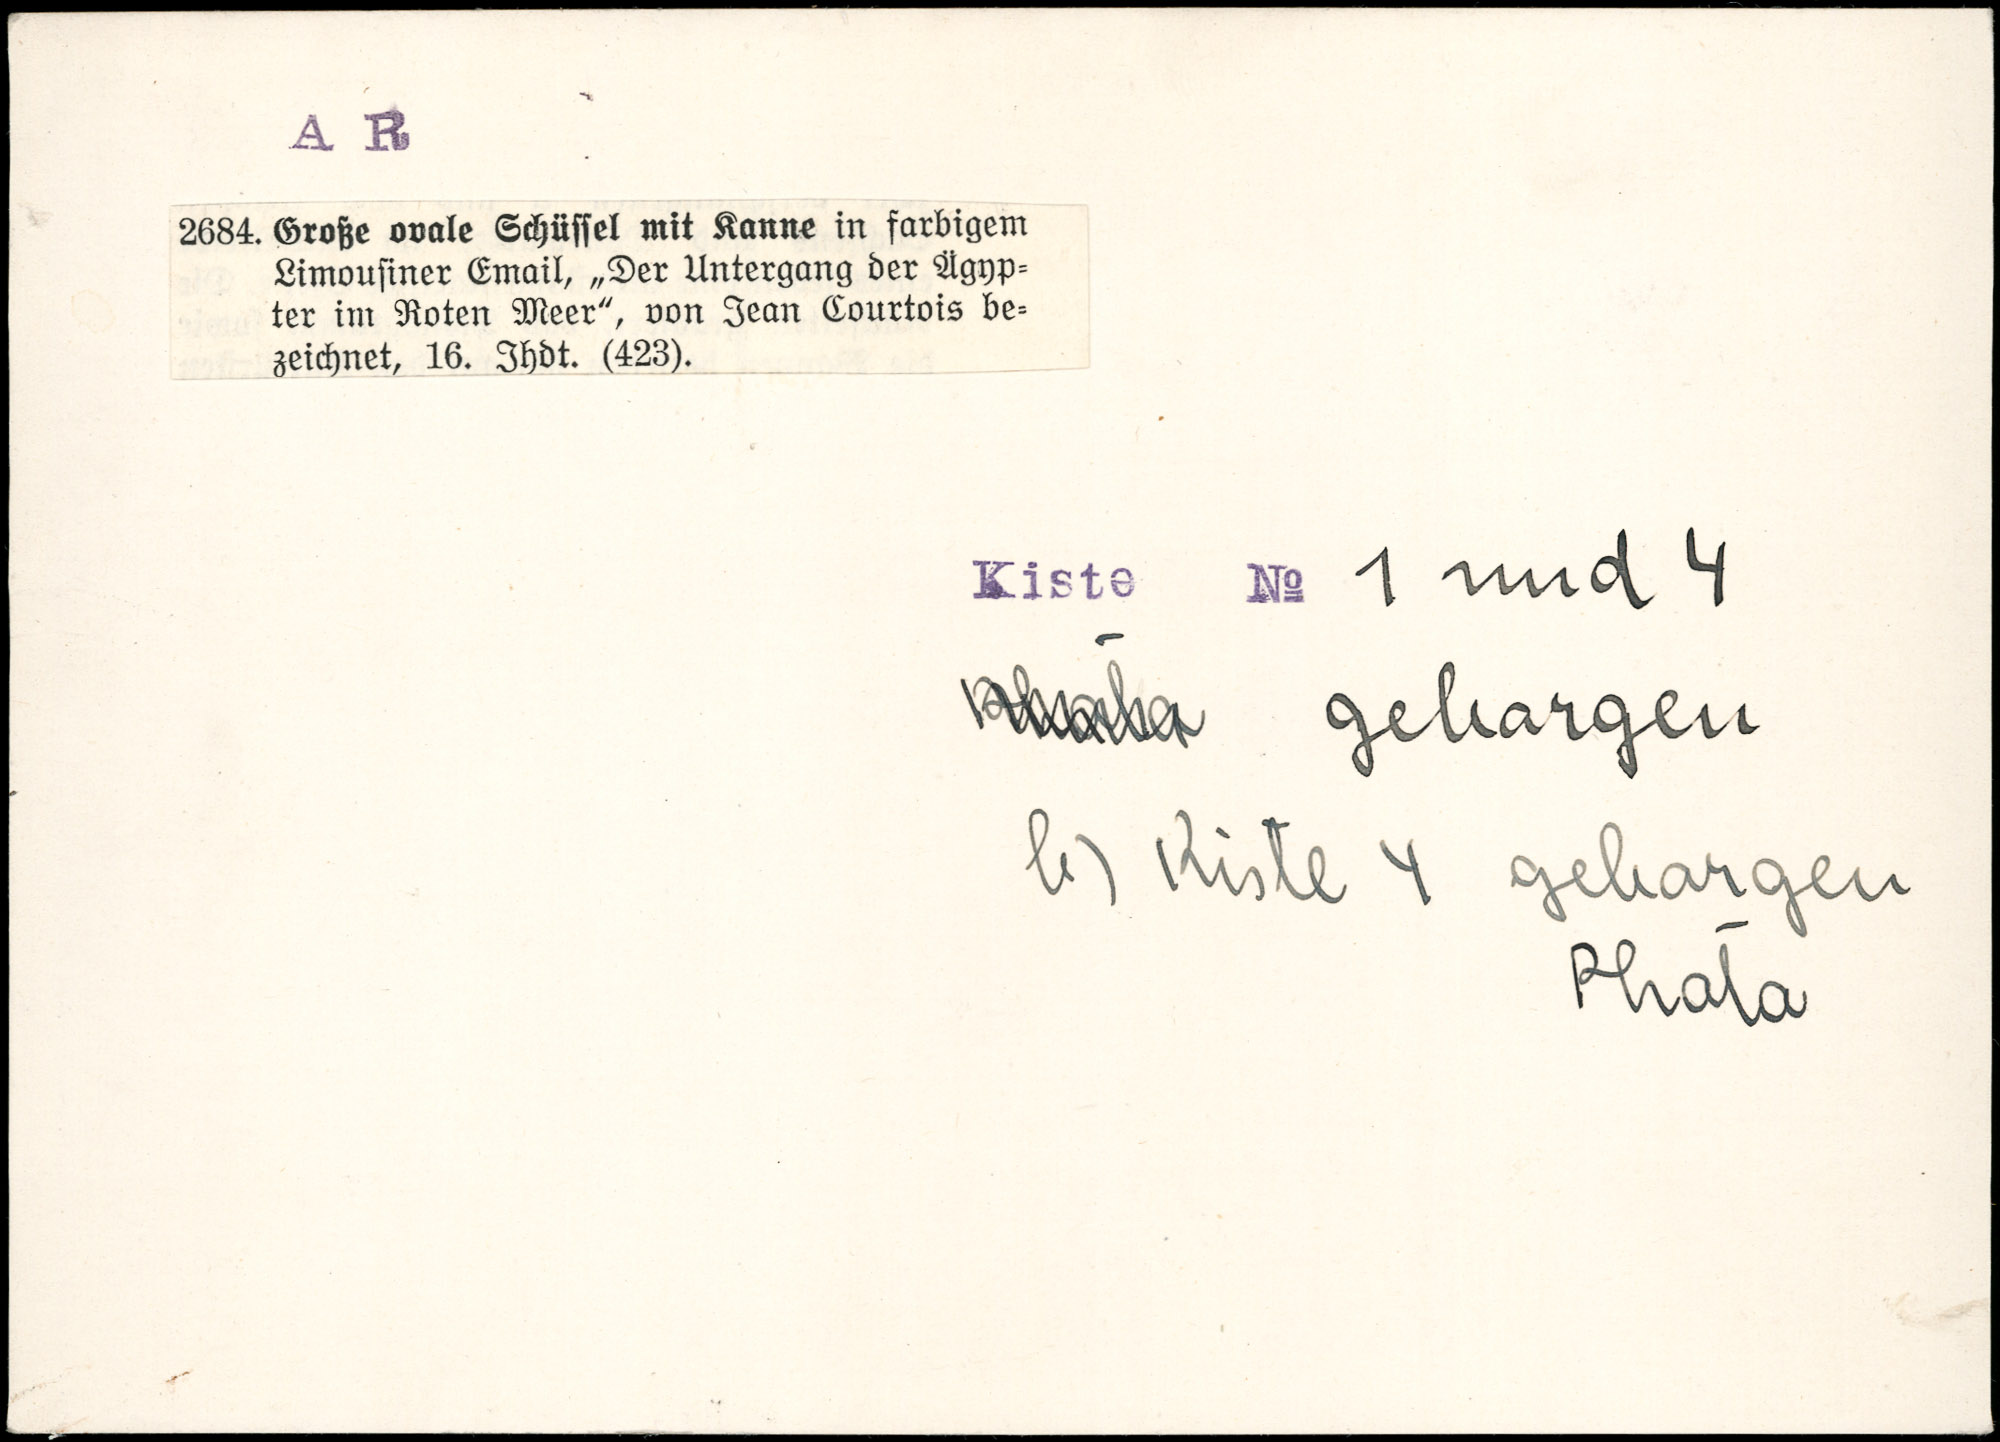 A R
2684. Große ovale Schüssel mit Kanne in farbigem
Limousiner Email, „Der Untergang der Ägyp-
ter im Roten Meer“, von Jean Courtois be-
zeichnet, 16. Jhdt. (423).
Kiste № 1 und 4
geborgen
b) Kiste 4 geborgen
Photo